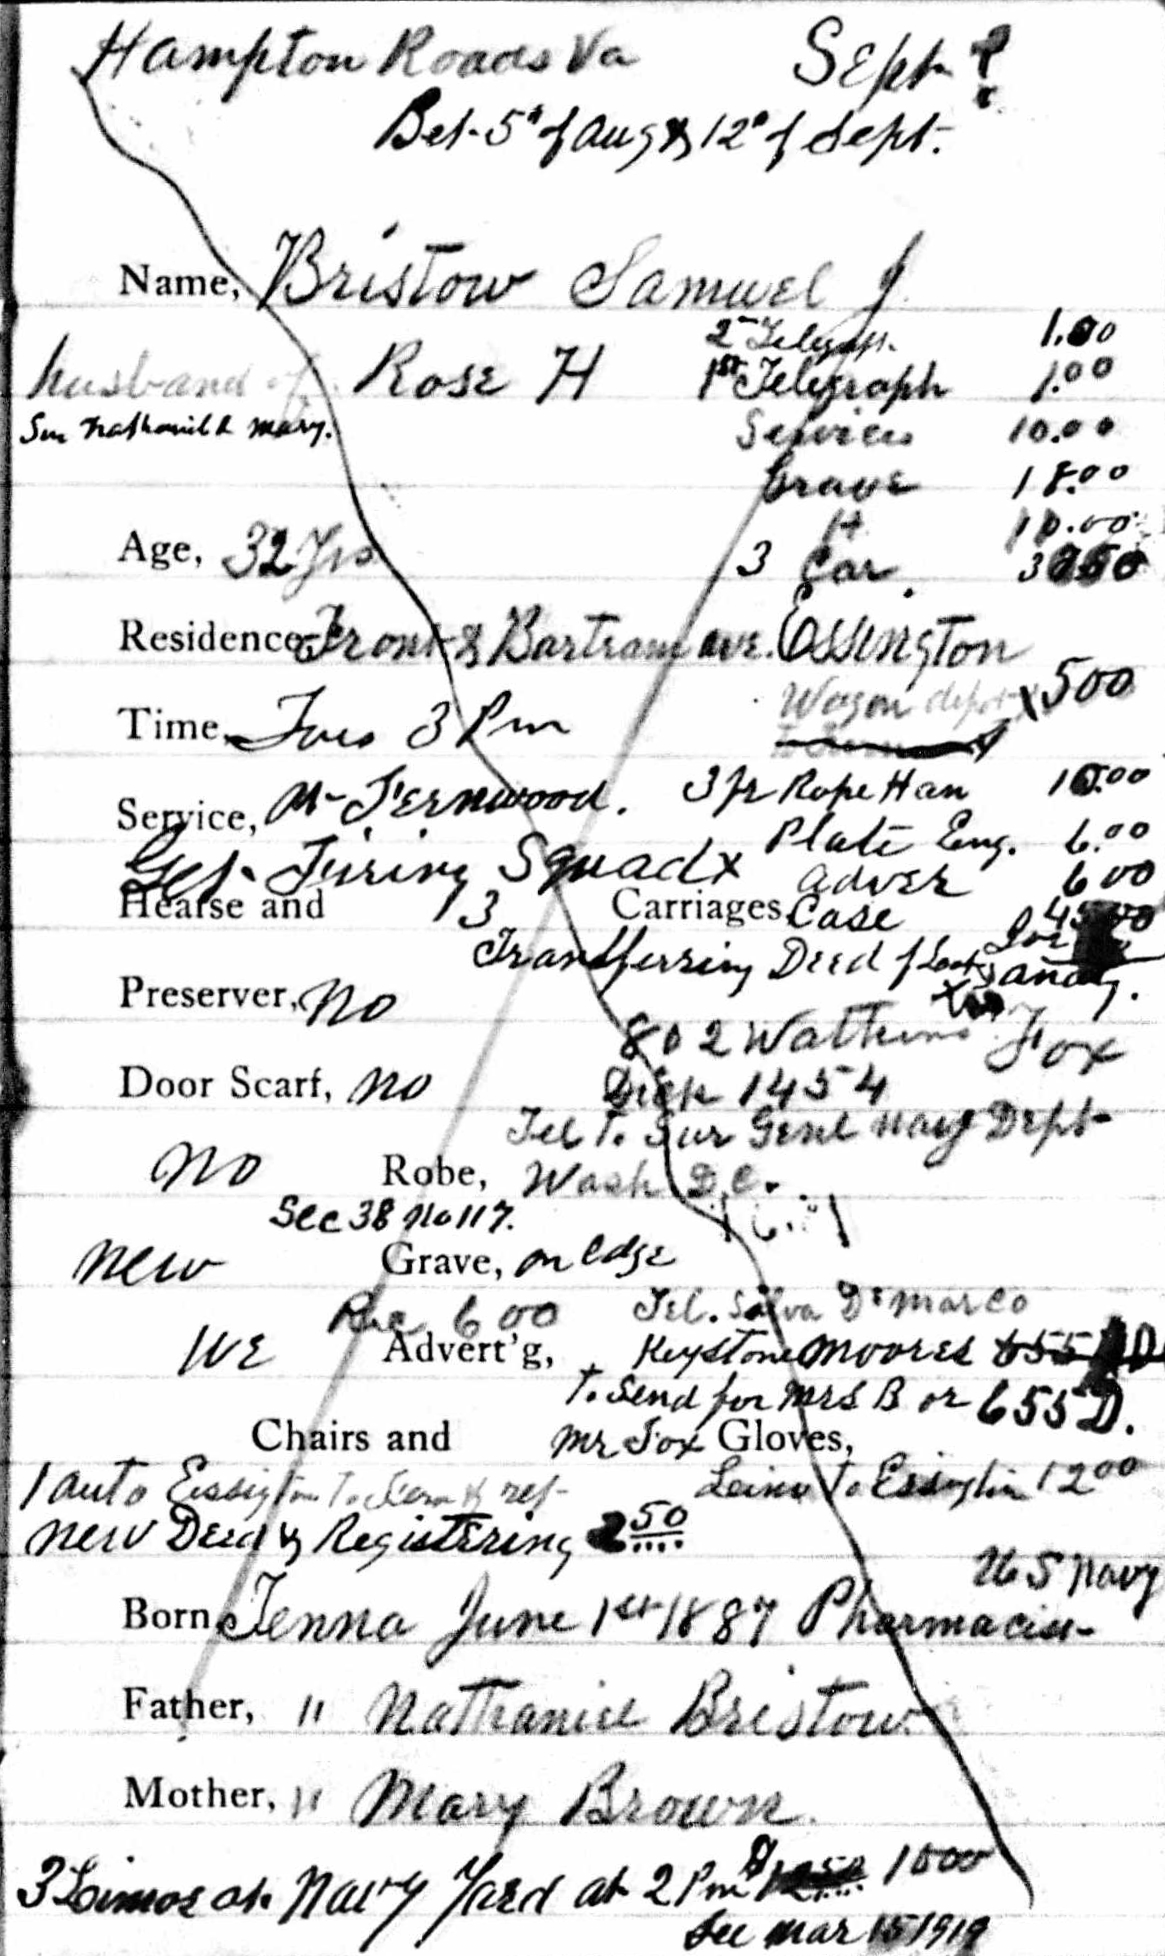 Hampton Roads Va Sept ?
Bet. 5" of Aug & 12" of Sept.
Name, Bristow Samuel J.
2" Telegh. 1.00
husband of Rose H 1st Telegraph 1.00
Son Nathaniel & Mary. Services 10.00
Grave 18.00
H 10.00
Age, 32 Yrs 3 Car.
Residence, Front & Bartram ave. Essington
Wagon depot 500
Time, Tues 3 Pm
Service, At Fernwood. 3 pr Rope Han 10.00
Get Firing Squad x Plate Eng. 6.00
Adver 6 00
Hearse and 3 Carriages, Case
Transferring Deed of Lot &
Preserver, No
802 Watkins Fox
Door Scarf, No Dick 1454
Tel To Sur Genl Navy Dept
No Robe, Wash D.C.
Sec 38 No 117.
New Grave, on Edge
Rec 6 00 Tel. Salva DeMarco
We Advert'g, Keystone Moores 655 D
To Send for Mrs B or 655 D.
Chairs and Mr Fox Gloves,
1 Auto Essington To Fern & ret- Limo To Essington 12 00
New Deed & Registering 2 50
U S Navy
Born, Penna June 1st 1887 Pharmacist
Father, " Nathaniel Bristow
Mother, " Mary Brown.
3 Limos at Navy Yard at 2 Pm 1000
See Mar 15 1919